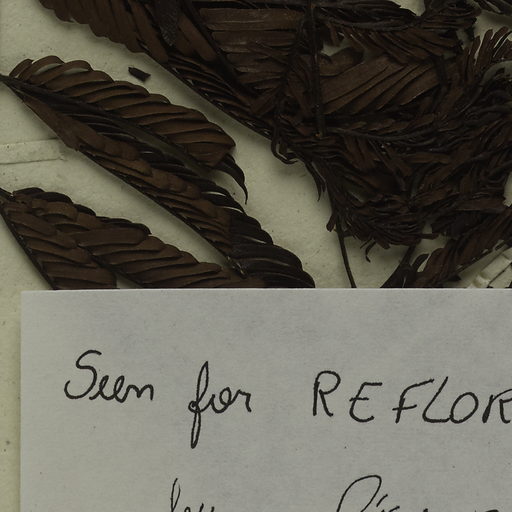 Seen for REFLOR
by